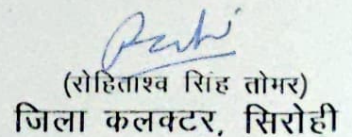 (रोहिताश्व सिंह तोमर)
जिला कलक्टर, सिरोही